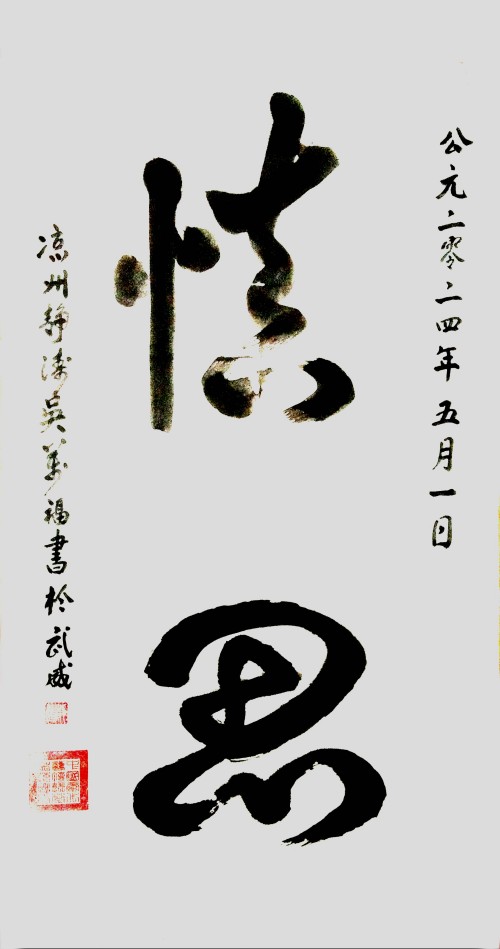 公元二零二四年五月一日
慎思
凉州静涛吴万福書於武威